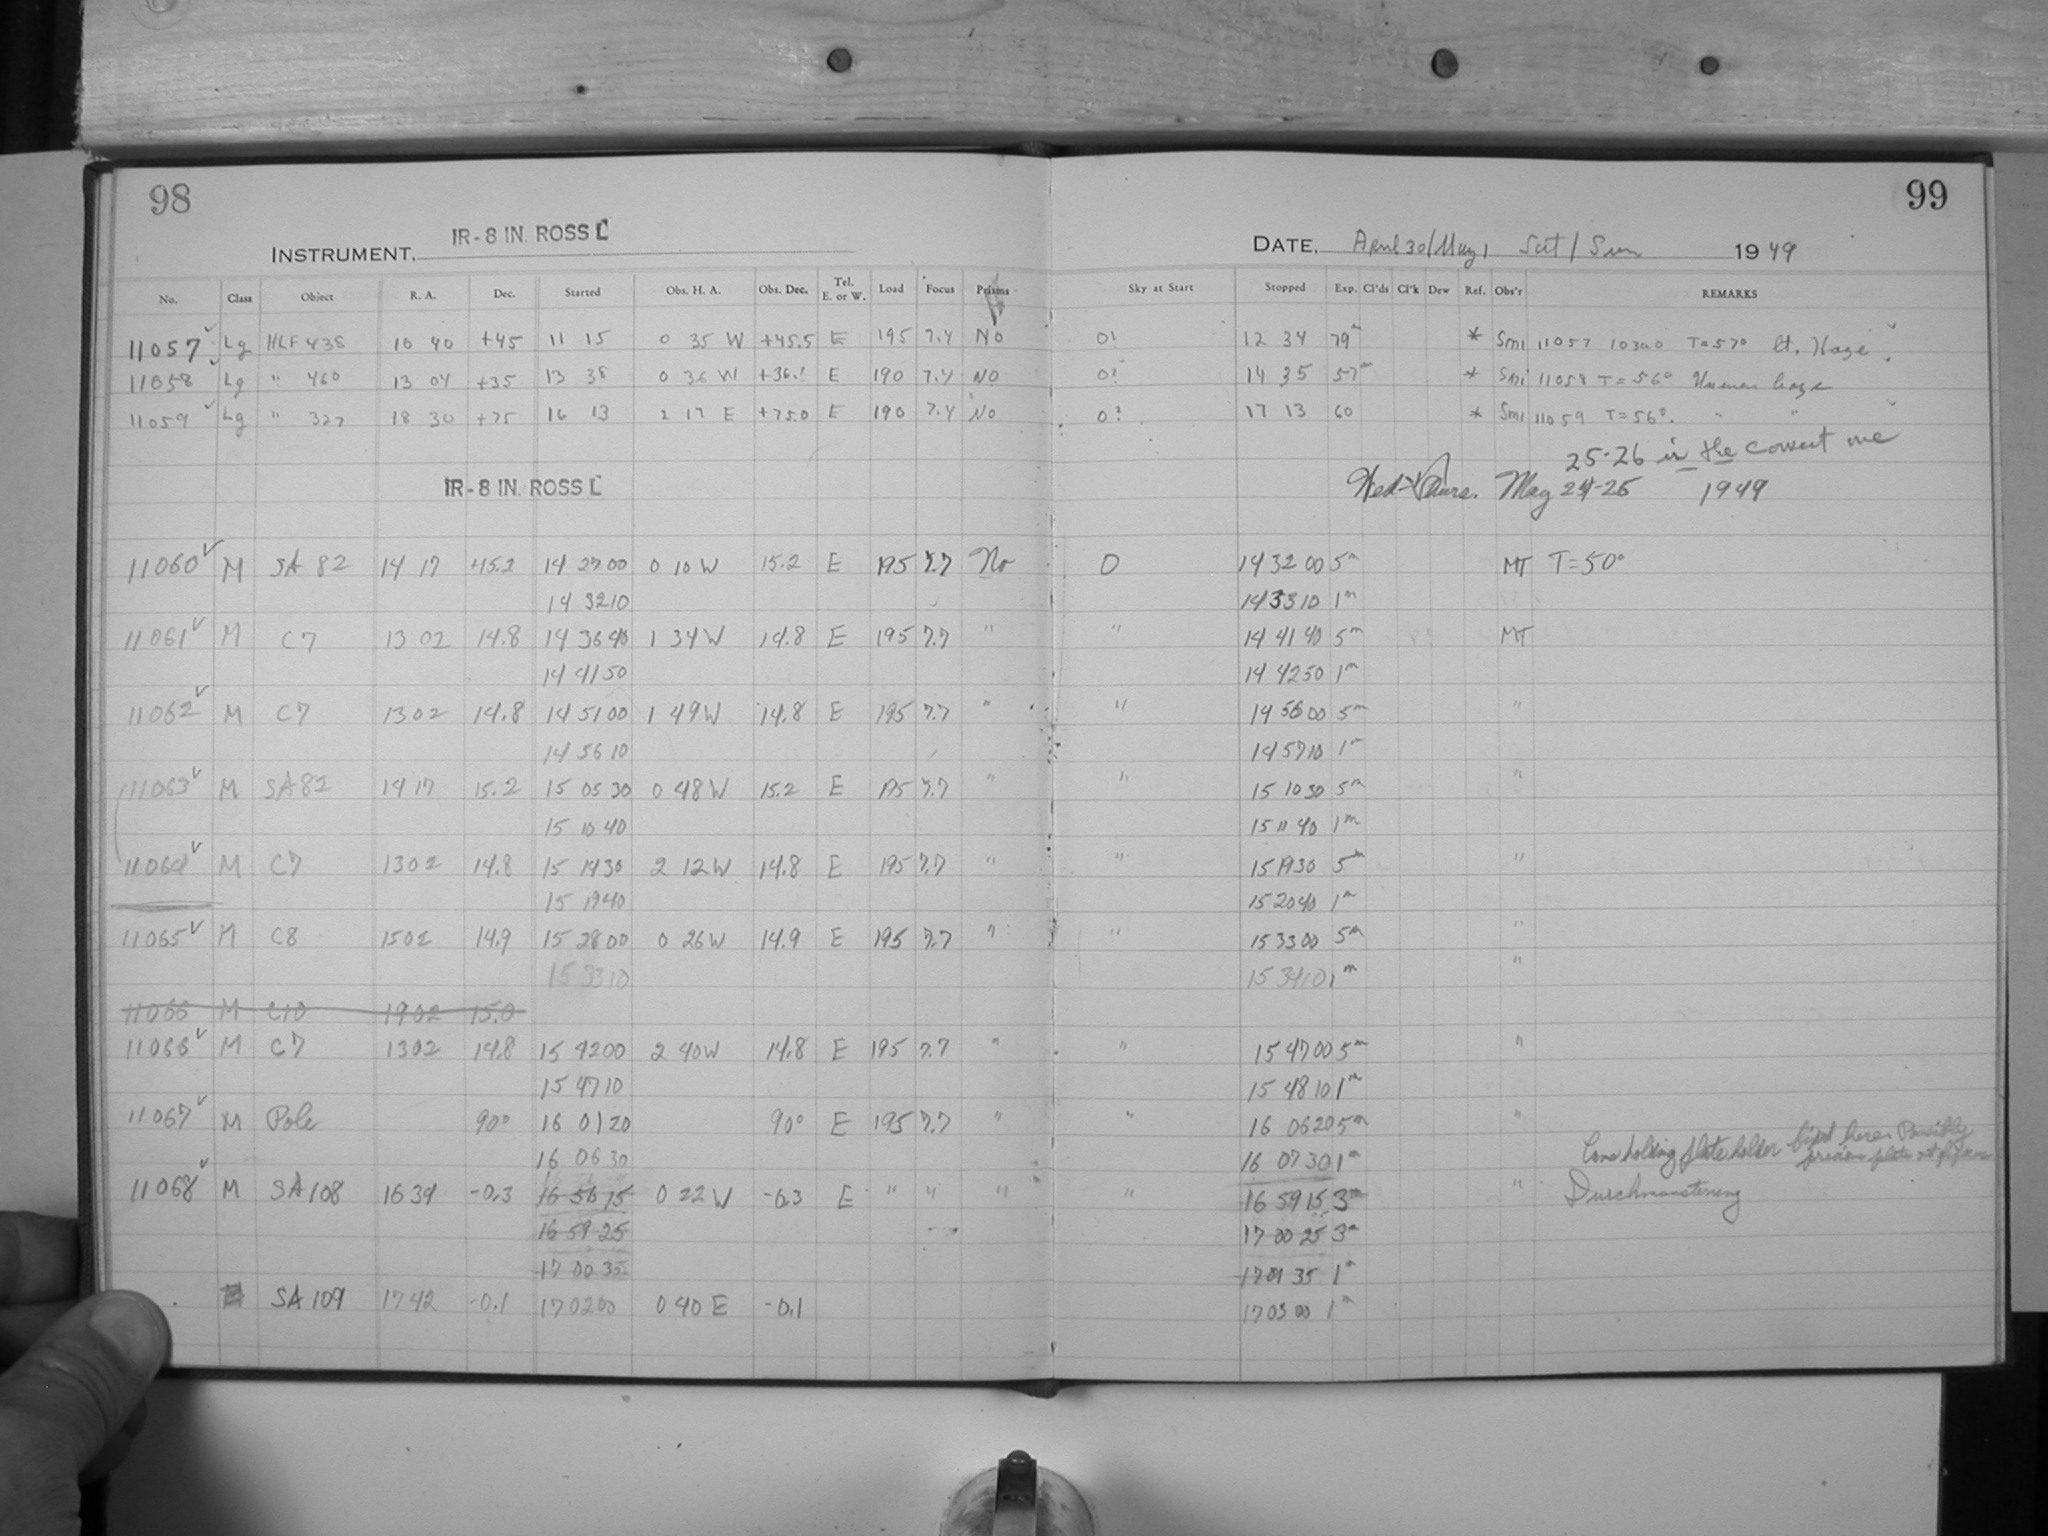 98
99
IR-8 IN. ROSS L
INSTRUMENT,
DATE, April 30/May 1 Sat/Sun 1949
No. Class Object R. A. Dec. Started Obs. H. A. Obs. Dec. Tel. E. or W. Load Focus Prisms Sky at Start Stopped Exp. Cl'ds Cl'k Dew Ref. Obs'r REMARKS
11057 Lg HLF 438 10 40 +45 11 15 0 35 W +45.5 E 195 7.4 No 0! 12 34 79m * Smi 11057 T=57° lt. Haze
11058 Lg " 460 13 04 +35 13 38 0 36 W E 190 7.4 NO 0? 14 35 57m * Smi 11058 T=56° haze
11059 Lg " 327 18 30 +75 16 13 2 17 E +75.0 E 190 7.4 No 0? 17 13 60 * Smi 11059 T=56°. " "
25-26 is the correct one
IR-8 IN. ROSS L
Wed-Thurs. May 24-25 1949
11060 M SA 82 14 17 +15.2 14 27 00 0 10 W 15.2 E 195 7.7 No 0 14 32 00 5m MT T=50°
14 32 10 14 33 10 1m
11061 M C7 13 02 14.8 14 36 40 1 34 W 14.8 E 195 7.7 " " 14 41 40 5m MT
14 41 50 14 42 50 1m
11062 M C7 13 02 14.8 14 51 00 1 49 W 14.8 E 195 7.7 " " 14 56 00 5m "
14 56 10 14 57 10 1m
11063 M SA 82 14 17 15.2 15 05 30 0 48 W 15.2 E 195 7.7 " " 15 10 30 5m "
15 10 40 15 11 40 1m
11064 M C7 13 02 14.8 15 14 30 2 12 W 14.8 E 195 7.7 " " 15 19 30 5m "
15 19 40 15 20 40 1m
11065 M C8 15 02 14.9 15 28 00 0 26 W 14.9 E 195 7.7 " " 15 33 00 5m "
15 33 10 15 34 10 1m "
11066 M C10 19 02 15.0
11066 M C7 13 02 14.8 15 42 00 2 40 W 14.8 E 195 7.7 " " 15 47 00 5m "
15 47 10 15 48 10 1m
11067 M Pole 90° 16 01 20 90° E 195 7.7 " " 16 06 20 5m "
16 06 30 16 07 30 1m Cone holding plate holder fixed here. Possibly previous plate out of focus
11068 M SA 108 16 34 -0.3 16 56 15 0 22 W -0.3 E " " " " 16 59 15 3m " Durchmusterung
16 59 25 17 00 25 3m
17 00 35 17 01 35 1m
SA 109 17 42 -0.1 17 02 00 0 40 E -0.1 17 03 00 1m